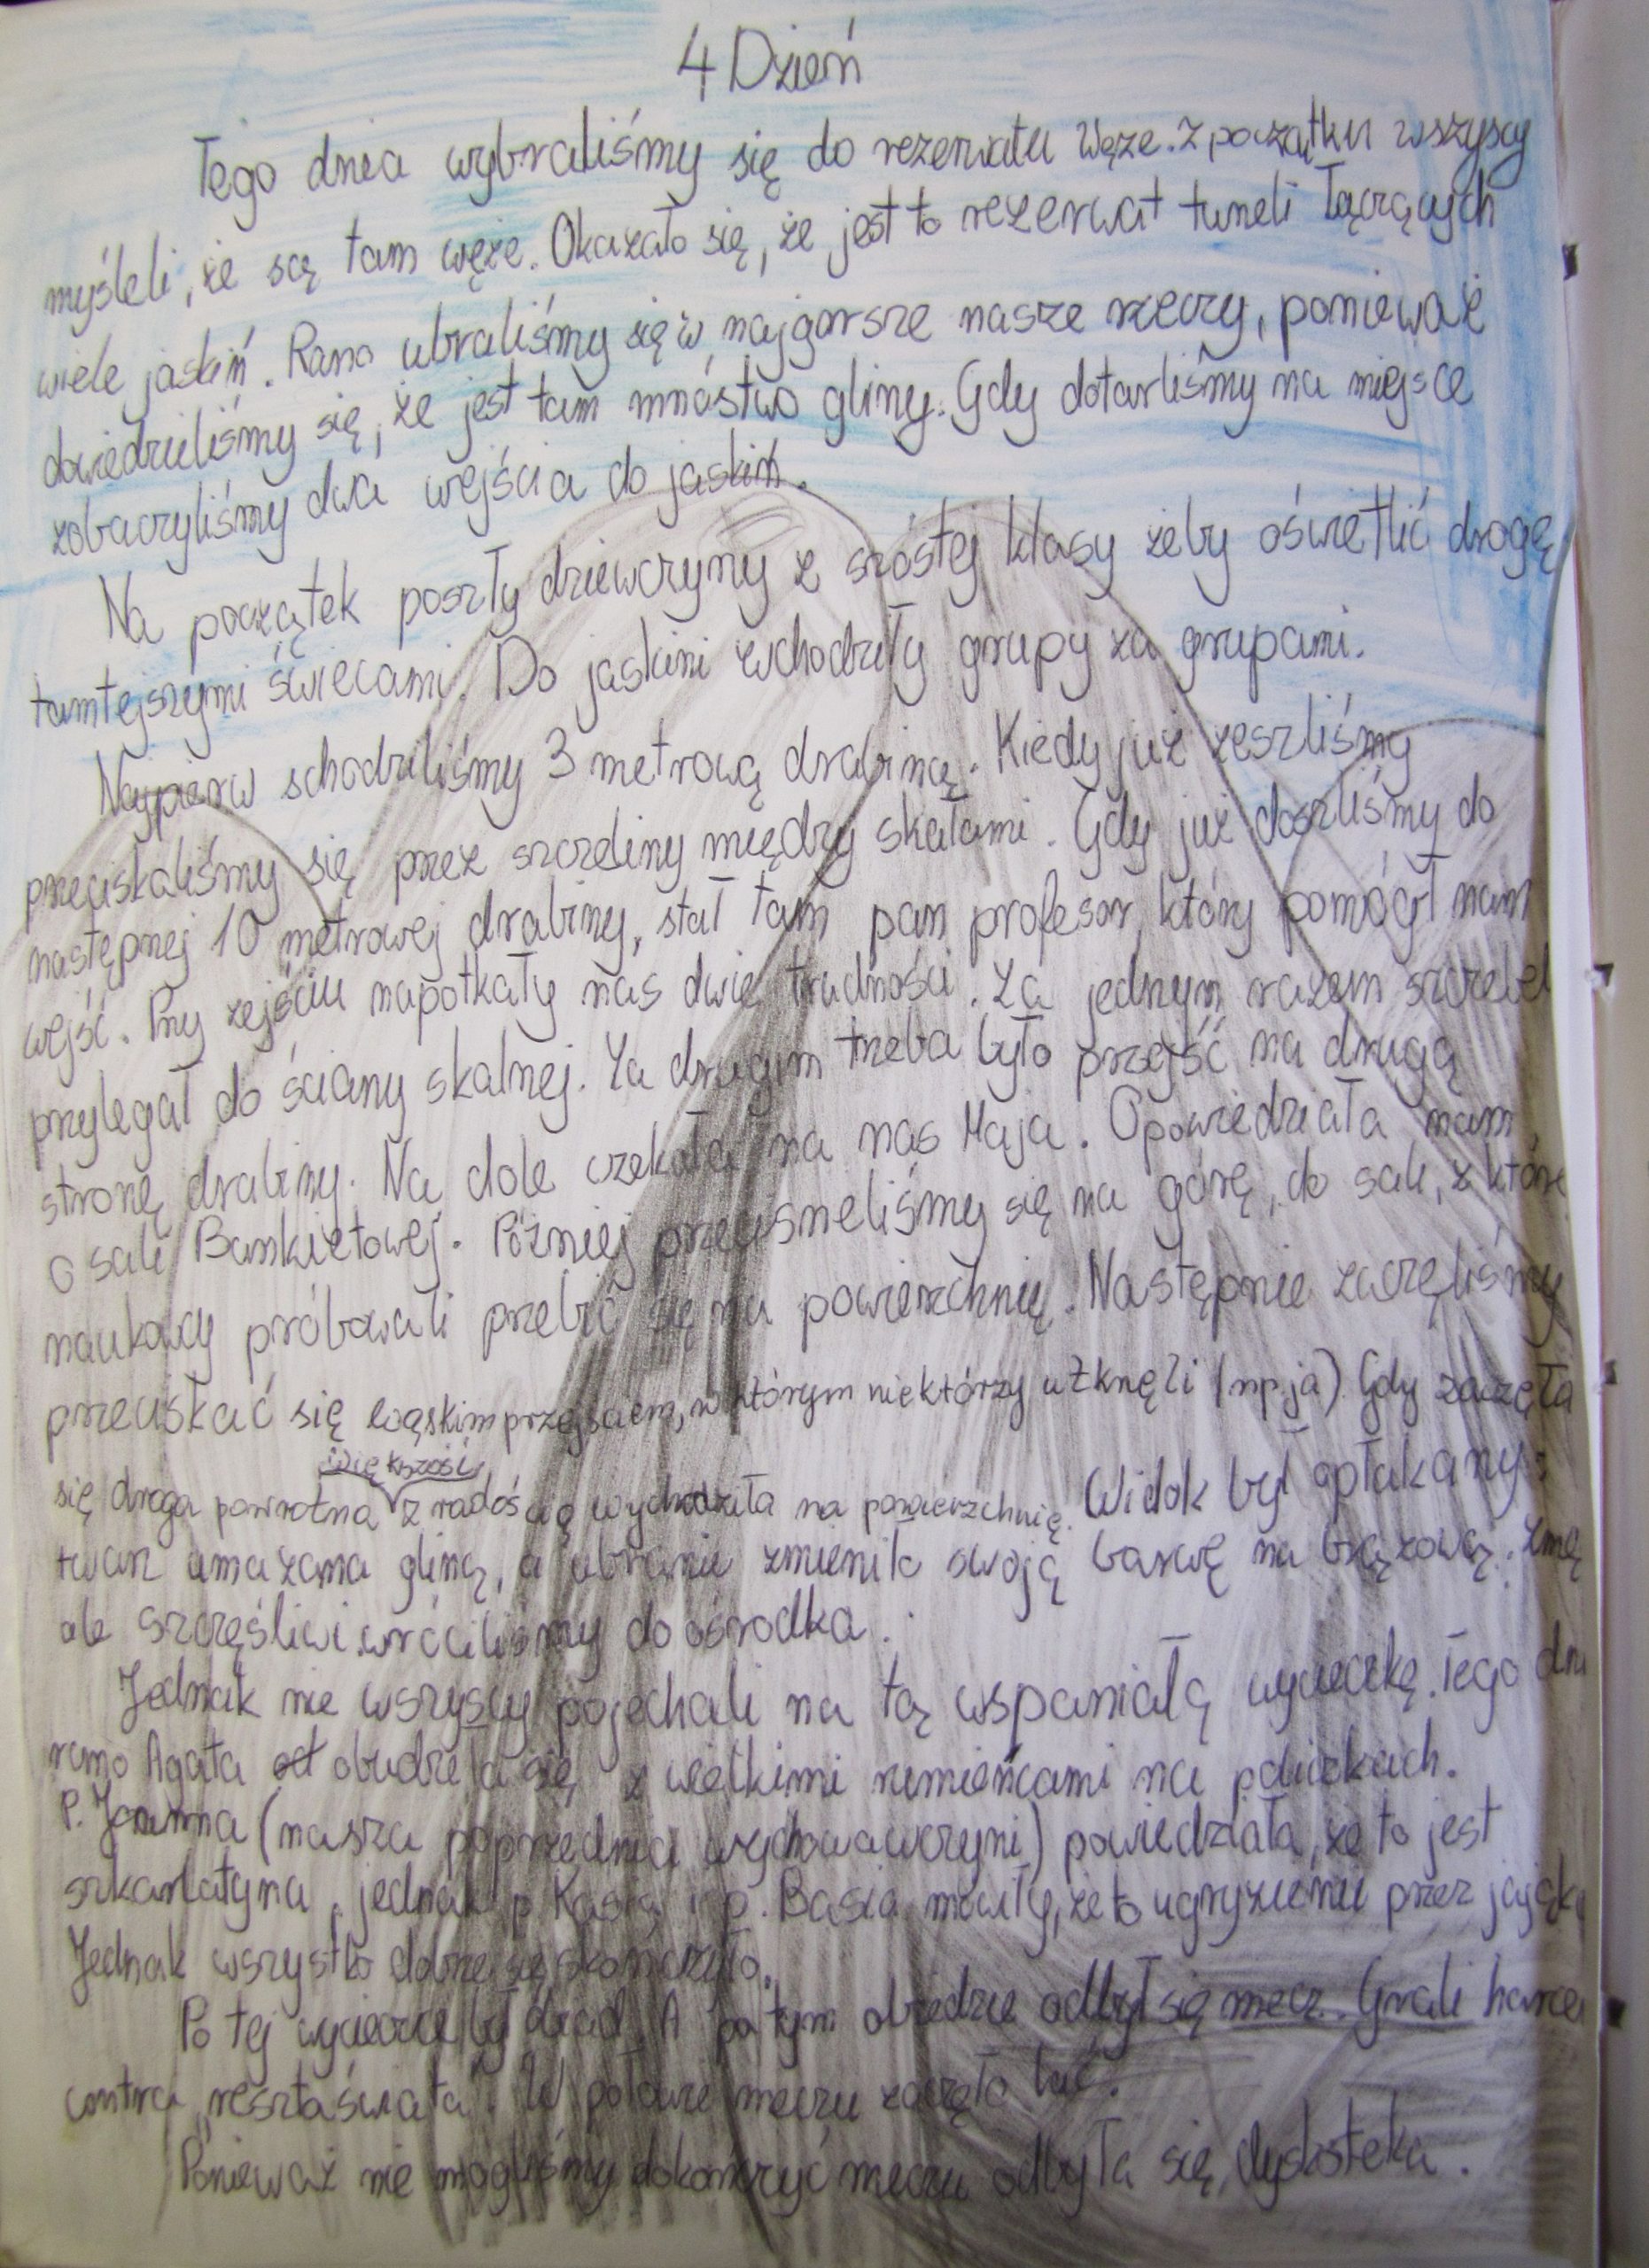 4 Dzień
Tego dnia wybraliśmy się do rezerwatu Węże. Z początku wszyscy
myśleli, że są tam węże. Okazało się, że jest to rezerwat tuneli łączących
wiele jaskiń. Rano ubraliśmy się w najgorsze nasze rzeczy, ponieważ
dowiedzieliśmy się, że jest tam mnóstwo gliny. Gdy dotarliśmy na miejsce
zobaczyliśmy dwa wejścia do jaskiń.
Na początek poszły dziewczyny z szóstej klasy żeby oświetlić drogę
tamtejszymi świecami. Do jaskini wchodziły grupy za grupami.
Najpierw schodziliśmy 3 metrową drabiną. Kiedy już zeszliśmy
przeciskaliśmy się przez szczeliny między skałami. Gdy już doszliśmy do
następnej 10 metrowej drabiny, stał tam pan profesor, który pomógł nam
wejść. Przy zejściu napotkały nas dwie trudności. Za jednym razem szczebel
przylegał do ściany skalnej. Za drugim trzeba było przejść na drugą
stronę drabiny. Na dole czekała na nas Maja. Opowiedziała nam
o sali Bankietowej. Później przecisneliśmy się na górę, do sali, z które
naukowcy próbowali przebić się na powierzchnię. Następnie zaczęliśmy
przeciskać się wąskim przejściem, w którym niektórzy utknęli (np. ja). Gdy zaczęła
się droga powrotna większość z radością wychodziła na powierzchnię. Widok był opłakany:
twarz umazana gliną, a ubranie zmieniło swoją barwę na brązową.
ale szczęśliwi wróciliśmy do ośrodka.
Jednak nie wszyscy pojechali na tą wspaniałą wycieczkę. Tego dni
rano Agata obudziła się z wielkimi rumieńcami na policzkach.
P. Joanna (nasza poprzednia wychowawczyni) powiedziała, że to jest
szkarlatyna, jednak p. Kasia i p. Basia mówiły, że to ugryzienie przez
Jednak wszystko dobrze się skończyło.
Po tej wycieczce był obiad. A po tym obiedzie odbył się mecz. Grali harce
contra „reszta świata”. W połowie meczu zaczęło lać.
Ponieważ nie mogliśmy dokończyć meczu odbyła się dyskoteka.